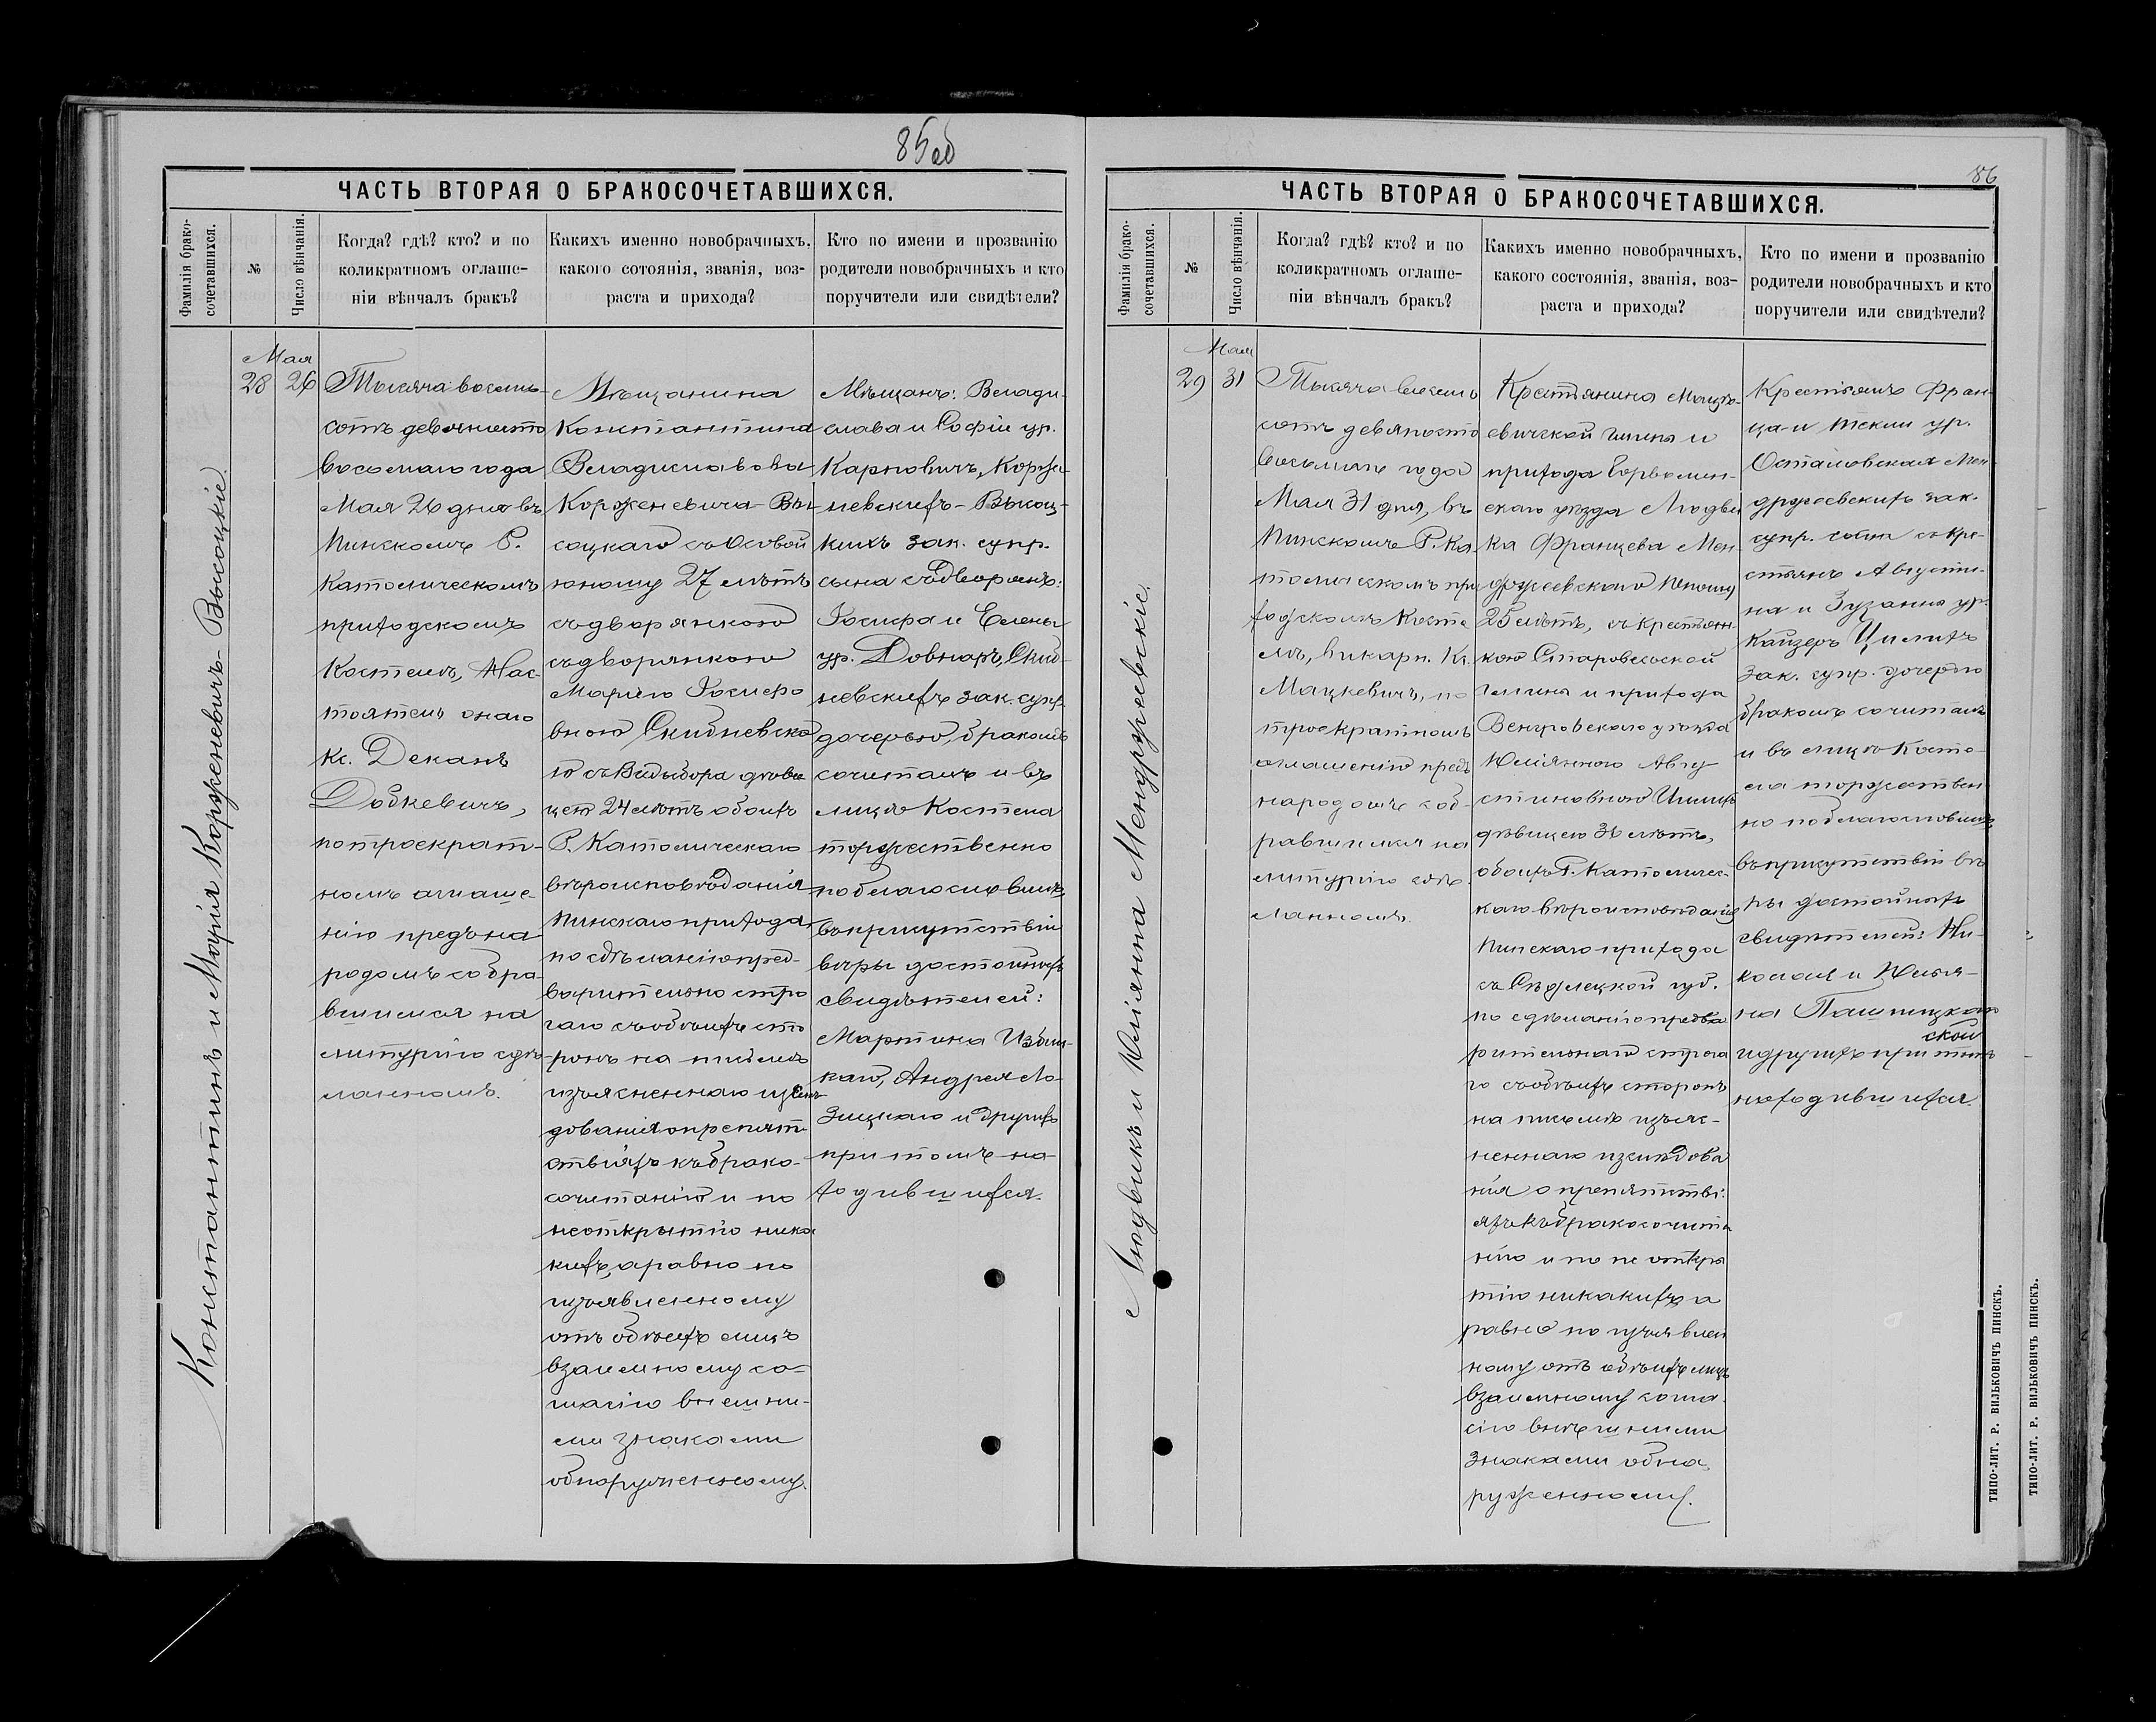 85 об
ЧАСТЬ ВТОРАЯ О БРАКОСОЧЕТАВШИХСЯ.
Фамилія брако-
сочетавшихся.
№
Число вѣнчанія.
Когда? гдѣ? кто? и по
коликратномъ оглаше-
ніи вѣнчалъ бракъ?
Какихъ именно новобрачныхъ,
какого сотоянія, званія, воз-
раста и прихода?
Кто по имени и прозванію
родители новобрачныхъ и кто
поручители или свидѣтели?
Константинъ и Марія Корженевичъ-Высоцкіе.
Мая
28 26
Тысяча восемь-
сотъ девяносто
восьмаго года
Мая 26 дня въ
Пинскомъ Р.
Католическомъ
приходскомъ
Костелѣ, Нас-
тоятель онаго
Кс. Деканъ
Добкевичъ,
по троекрат-
номъ оглаше-
нію предъ на-
родомъ собра-
вшимся на
литургію сдѣ-
ланномъ.
Мѣщанина
Константина
Владиславова
Корженевича-Вы-
соцкаго съ Осовой
юношу 27 лѣтъ
съ дворянкою
съ дворянкою
Маріею Іосифо
вною Скибневско
ю съ Выдыбора дѣви
цею 24 лѣтъ обоихъ
Р. Католическаго
вѣроисповѣданія
Пинскаго прихода,
по сдѣланію пред-
варительно стро
гаго съ обѣихъ сто
ронъ на письмѣ
изъясненнаго изслѣ
дованія о препят-
ствіяхъ къ брако-
сочетанію и по
неоткрытію ника
кихъ, а равно по
изъявленному
отъ обѣихъ лицъ
взаимному со-
гласію внешни-
ми знаками
обнаруженному.
Мѣщанъ: Влади-
слава и Софіи ур.
Карповичъ, Корже-
невскихъ-Высоц-
кихъ зак. супр.
сына съ Дворянъ:
Іосифа и Елены
ур. Довнаръ, Скиб-
невскихъ зак. супр.
дочерью, бракомъ
сочеталъ и въ
лицѣ Костела
торжественно
поблагословилъ
въ присутствіи
вѣры достойныхъ
свидѣтелей:
Мартина
Андрея Ло-
зицкаго и другихъ
при томъ на-
ходившихся.
86
ЧАСТЬ ВТОРАЯ О БРАКОСОЧЕТАВШИХСЯ.
Фамилія брако-
сочетавшихся.
№
Число вѣнчанія.
Когла? гдѣ? кто? и по
коликратномъ оглаше-
ніи вѣнчалъ бракъ?
Какихъ именно новобрачныхъ,
какого состоянія, званія, воз-
раста и прихода?
Кто по имени и прозванію
родители новобрачныхъ и кто
поручители или свидѣтели?
Людвикъ и Юліянна Мендржеевскіе.
Мая
29 31
Тысяча восемь
сотъ девяносто
восьмаго года
Мая 31 дня, въ
Пинскомъ Р. Ка-
толическомъ при
ходскомъ Косте
лѣ, Викарн. Кс.
Мацкевичъ, по
троекратномъ
оглашенію предъ
народомъ соб-
равшимся на
литургію сдѣ-
ланномъ.
Крестьянина
гмины и
прихода
скаго уѣзда Людви
ка Францева Мен-
држеевскаго юношу
25 лѣтъ, съ крестьян-
кою Старовеской
Гмины и прихода
Венгровскаго уѣзда
Юліянною Авгу-
стиновною
дѣвицею 30 лѣтъ,
обоихъ Р. Католичес-
каго вѣроисповѣданія
Пинскаго прихода
съ Сѣдлецкой губ.
по сдѣланію предва
рительнаго строга
го съ обѣихъ сторонъ
на письмѣ изъяс-
неннаго изслѣдова
нія о препятстві-
яхъ къ бракосочета
нію и по не откры
тію никакихъ, а
равно по изъявлен
ному отъ обѣихъ лицъ
взаимному согла
сію внѣшними
знаками обна-
руженному.
Крестьянъ Фран-
ца и Теклы ур.
Осташовская Мен-
држеевскихъ зак.
супр. сына съ кре-
стьянъ Августи-
на и Зузанны ур.
Кайзеръ
зак. супр. дочерью
бракомъ сочеталъ
и въ лицѣ Косте-
ла торжествен
но поблагословилъ
въ присутствіи вѣ
ры достойныхъ
свидѣтелей: Ни-
колая и Юлья-
на
ской
и другихъ при томъ
находившихся.
ТИПО-ЛИТ. Р. ВИЛЬКОВИЧЪ ПИНСКЪ.
ТИПО-ЛИТ. Р. ВИЛЬКОВИЧЪ ПИНСКЪ.